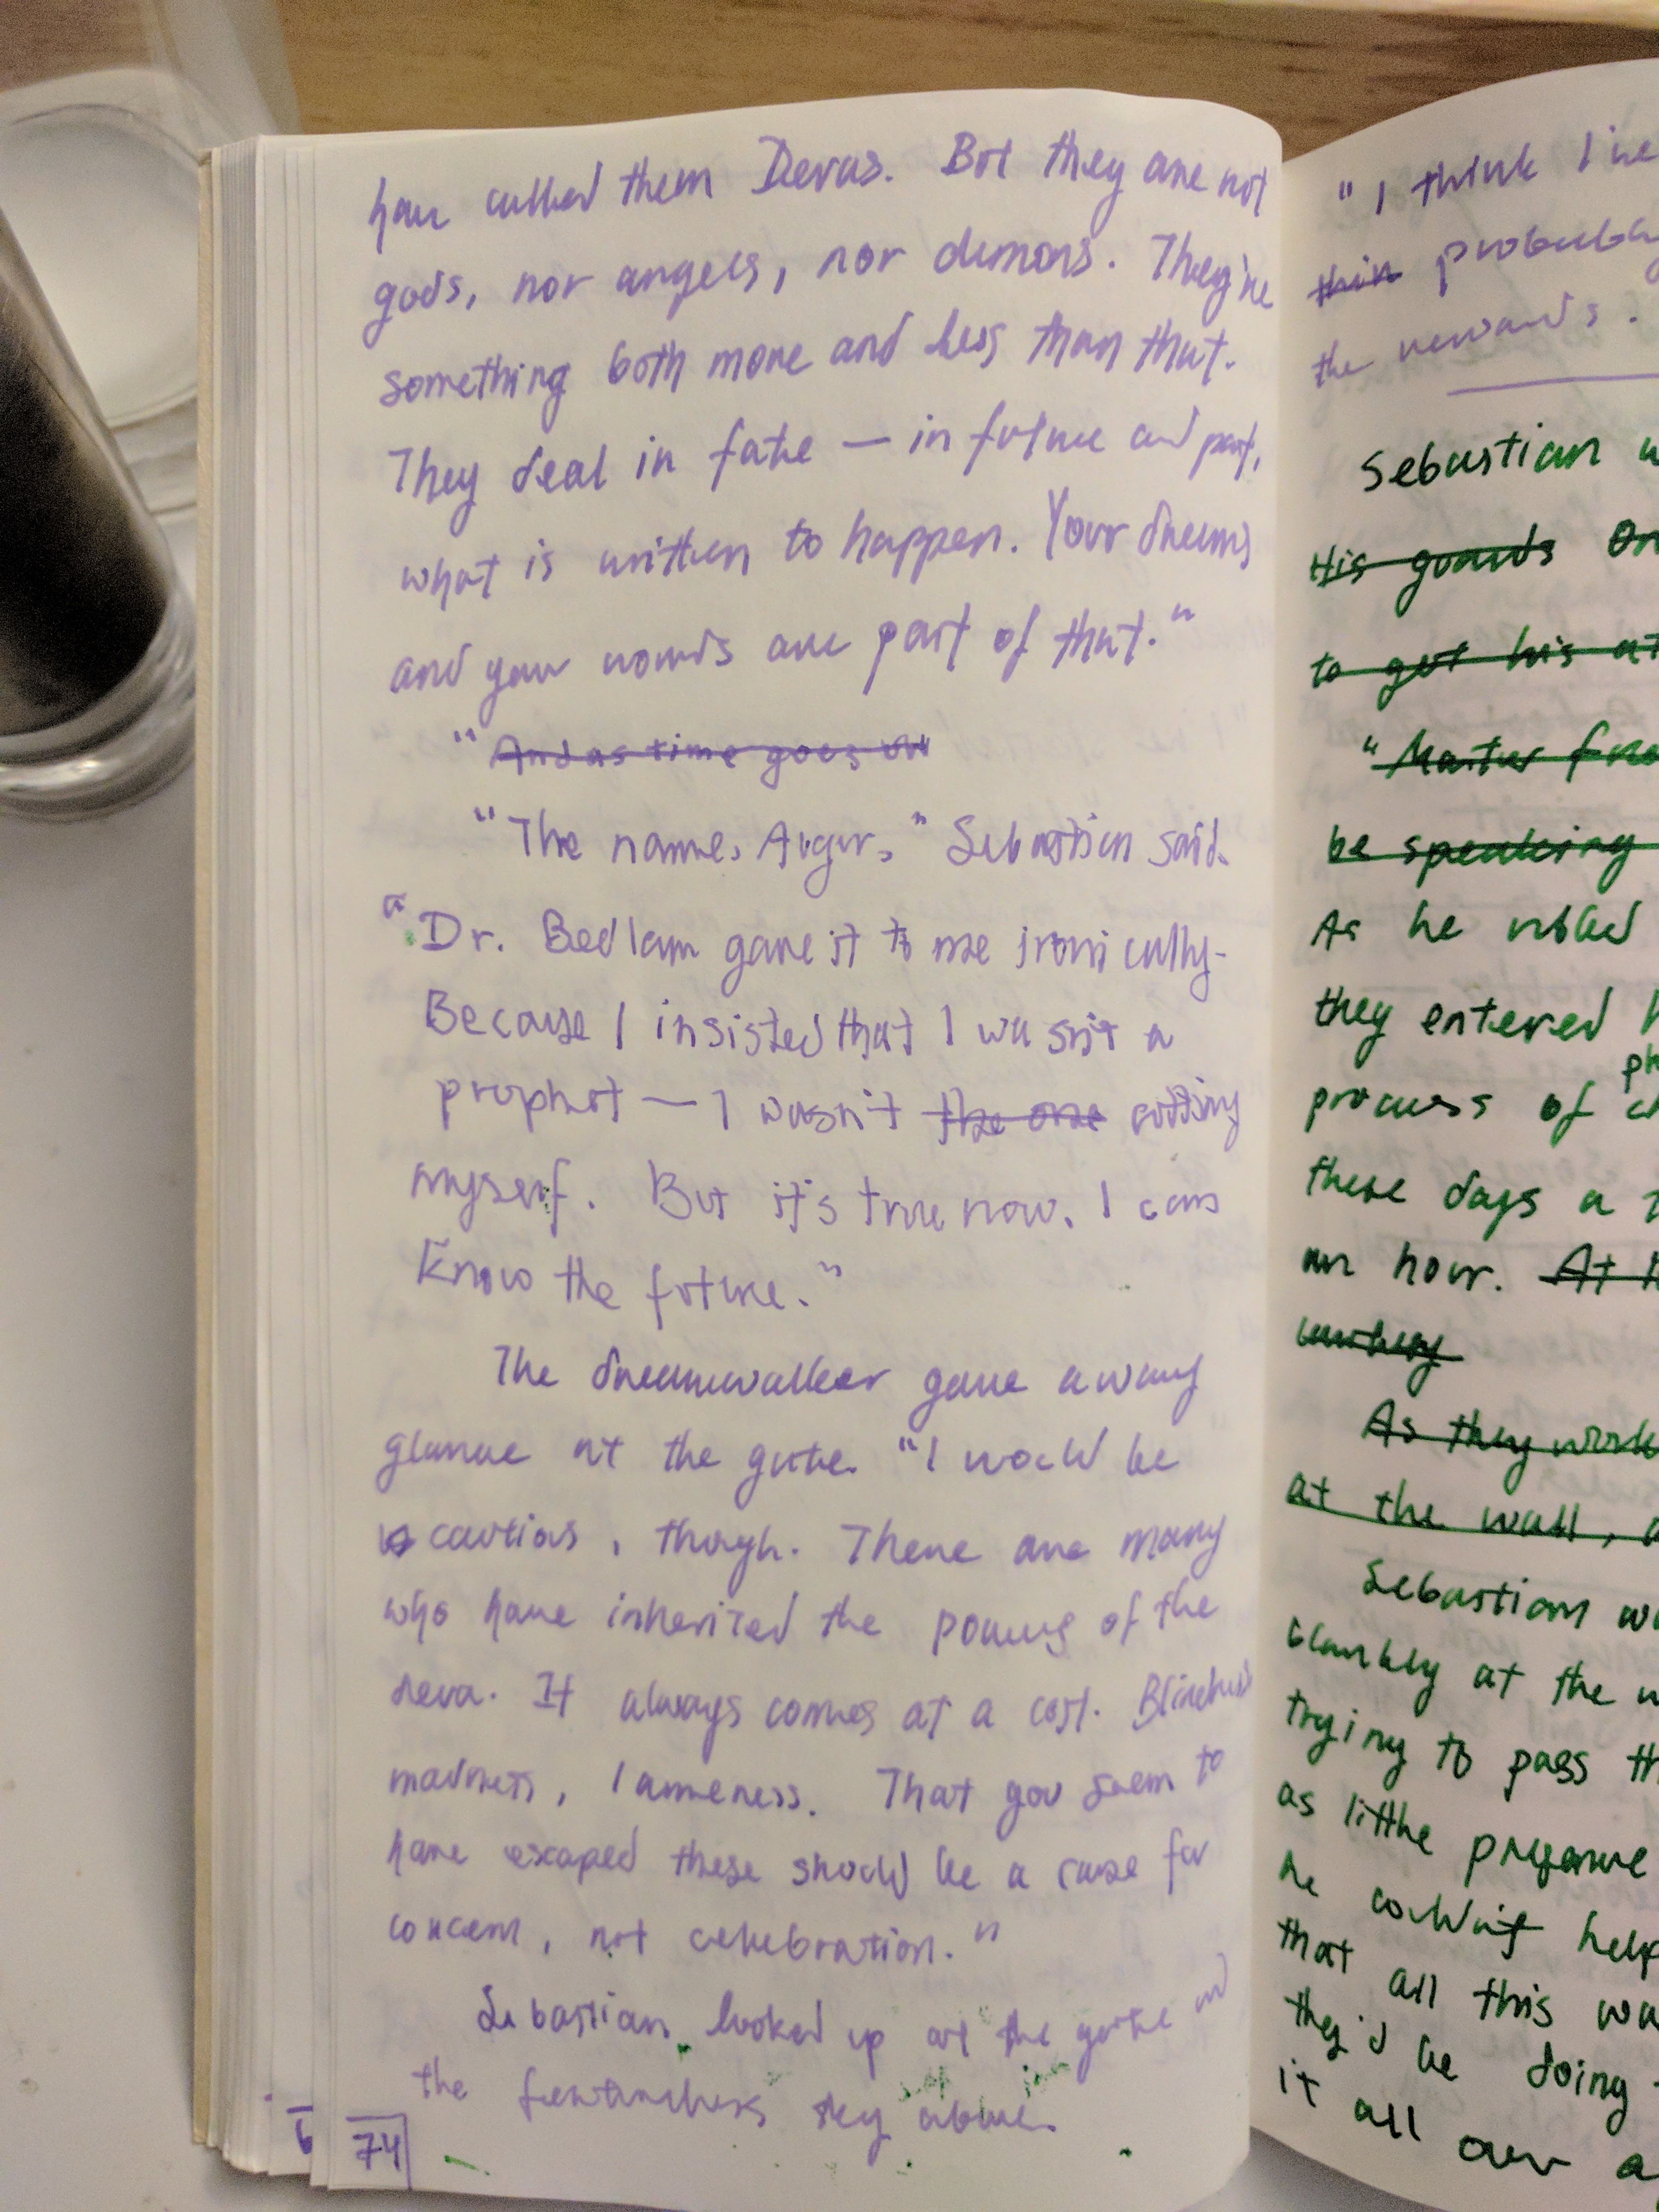 have called them Devas. But they are not
gods, nor angels, nor demons. They're
something both more and less than that.
They deal in fate — in future and past,
what is written to happen. Your dreams
and your words are part of that."
" And as time goes on
"The name, Augur," Sebastian said.
"Dr. Bedlam gave it to me ironically.
Because I insisted that I wasn't a
prophet — I wasn't the one cutting
myself. But it's true now. I can
know the future."
The dreamwalker gave a wary
glance at the gate. "I would be
cautios, though. There are many
who have inherited the powers of the
deva. It always comes at a cost. Blindness
madness, lameness. That you seem to
have escaped these should be a cause for
concern, not celebration."
Sebastian looked up at the gate and
the featureless sky above.
74
6
"I think I've
thin probably
the rewards.
Sebastian w
His guards On
to get his at
"Master
be speaking
As he
they entered
process of
these days a
an hour. At
As they work
at the wall, a
Sebastian wa
blankly at the w
trying to pass th
as little
he couldn't help
that all this wa
they'd be doing
it all over a